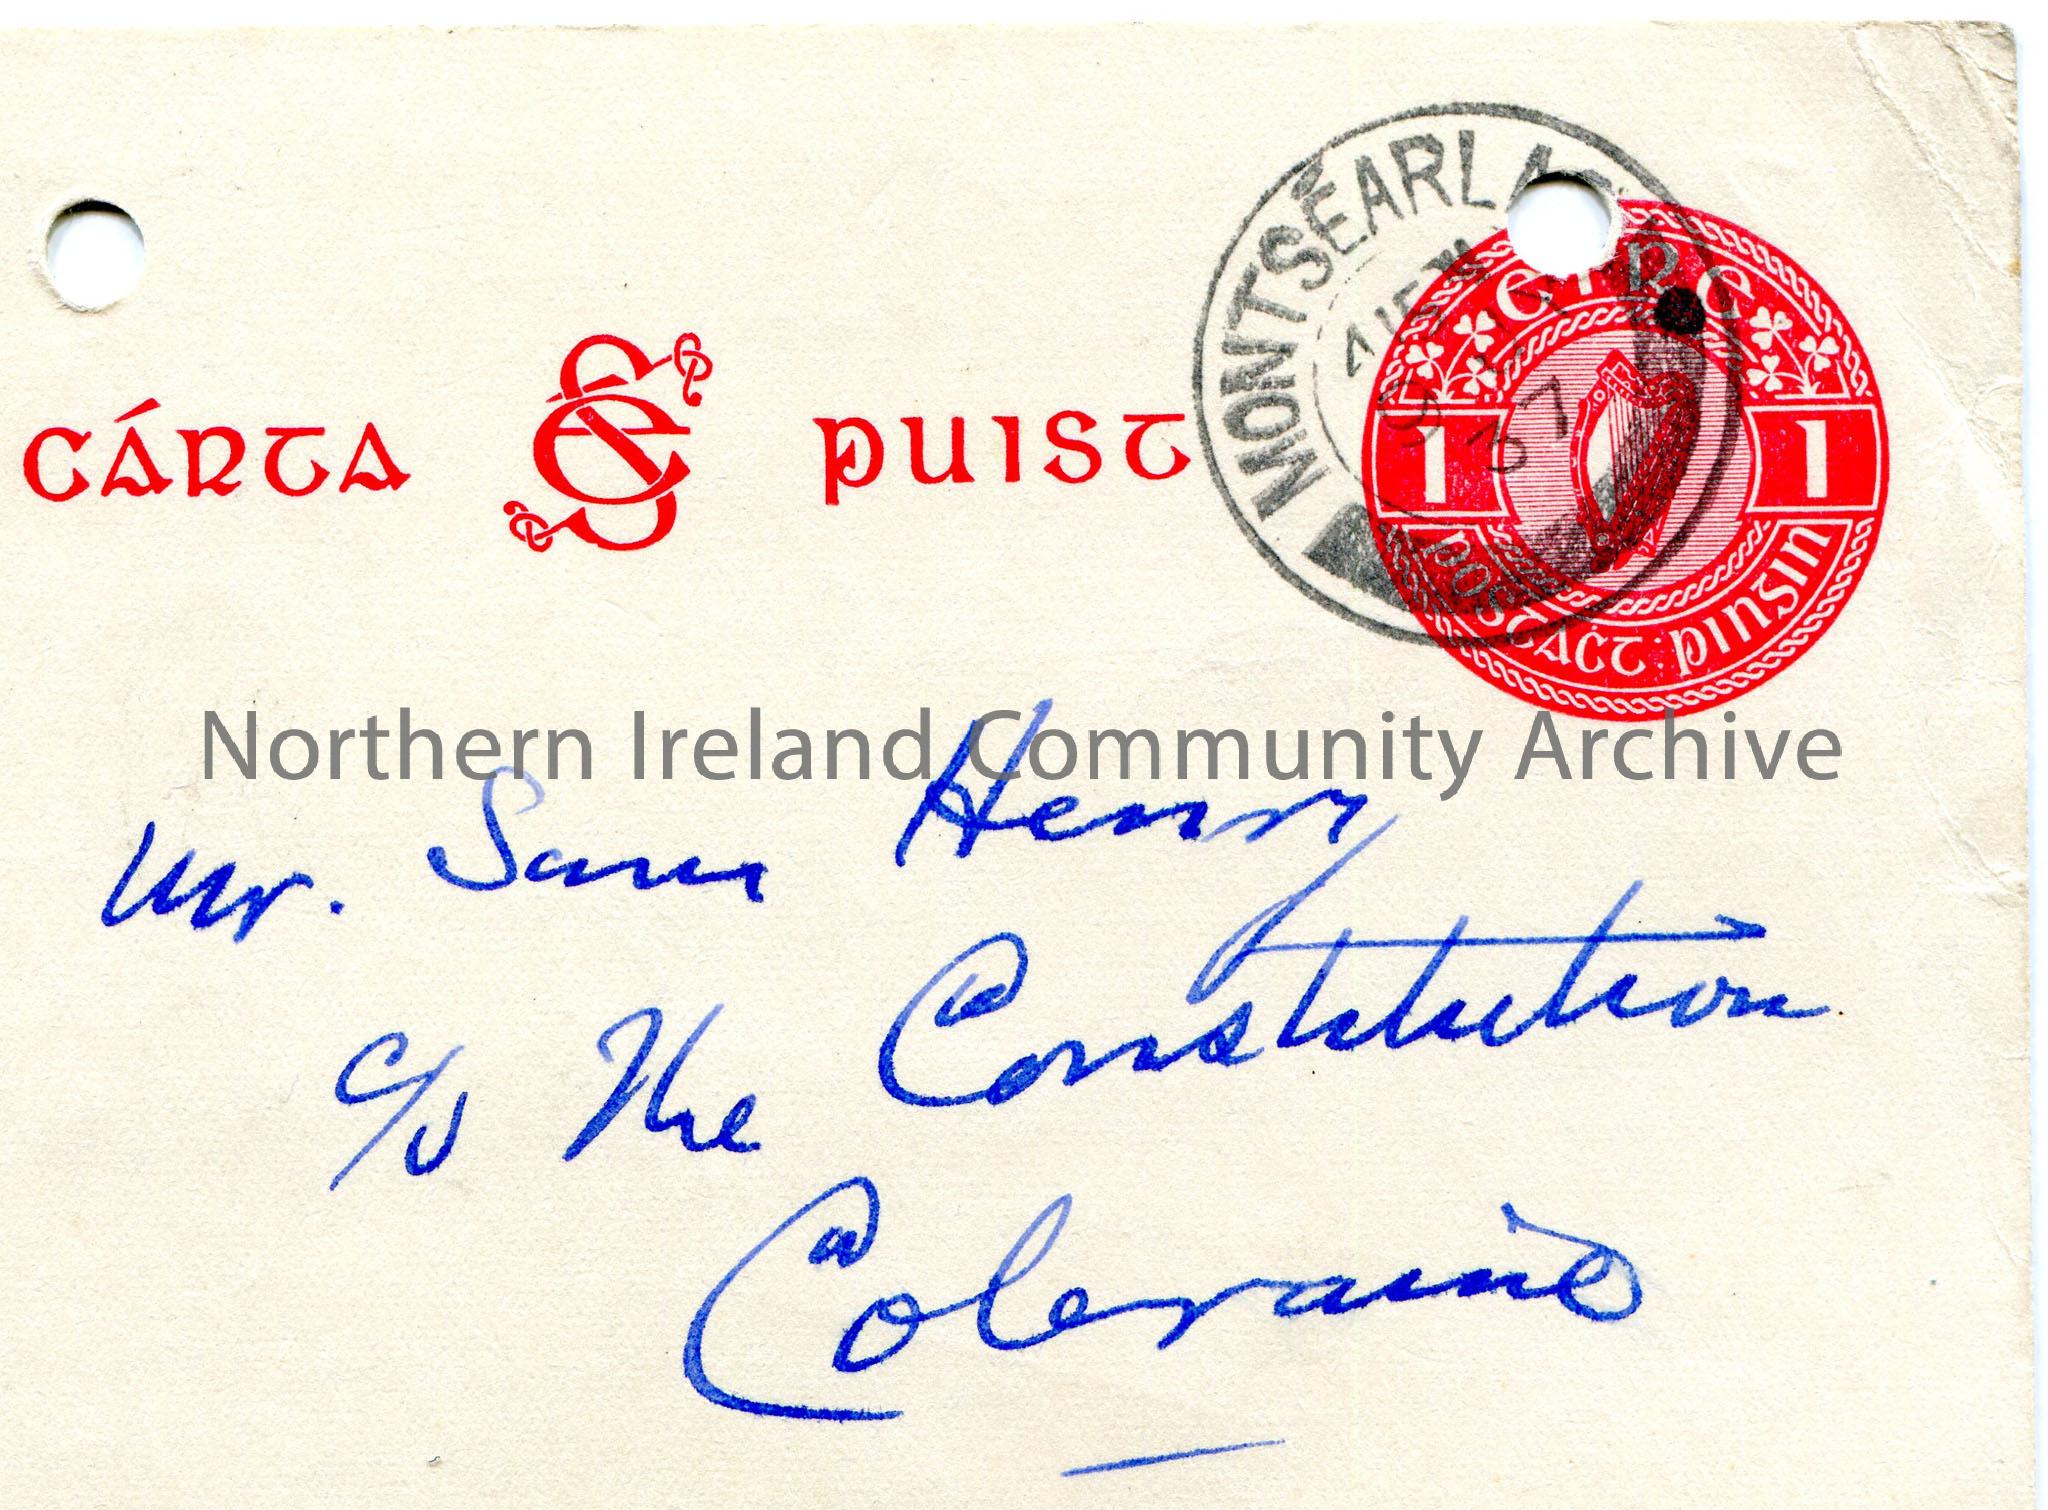 CÁRTA SE PUIST
MONTSEARLA
EIRE
1 1
POSTAĊT · PINGIN
37
Northern Ireland Community Archive
Mr. Sam Henry
c/o The Constitution
Coleraine